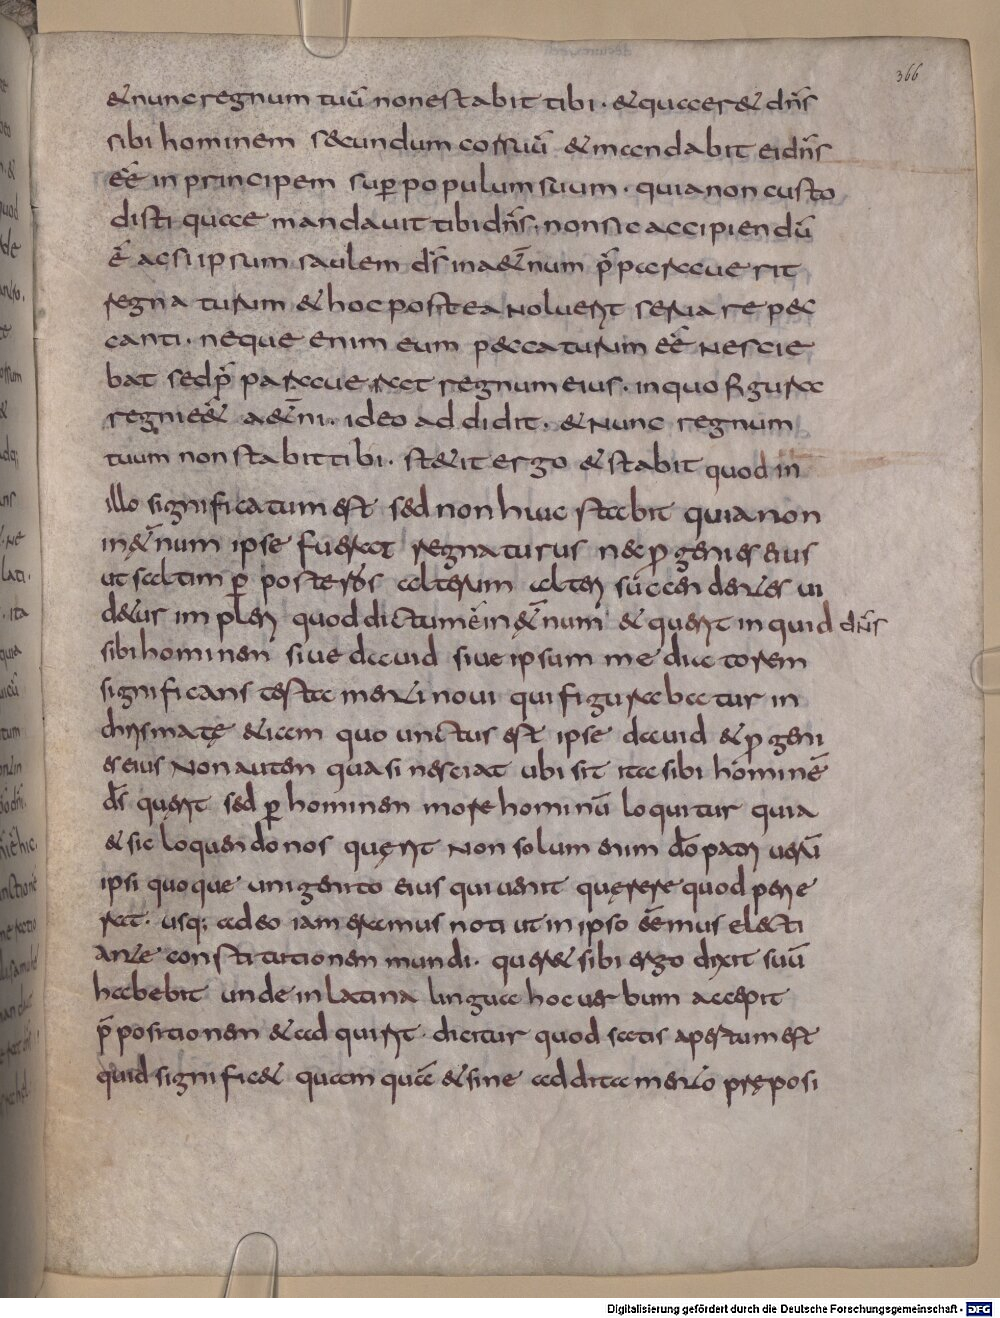 366
& nunc regnum tuū non estabit tibi · & quaeret dn̄s
sibi hominem secundum cor suū & mandabit ei dn̄s
eē in principem super populum suum · quia non custo
disti quae mandavit tibi dn̄s · non sic accipiendū
ē ac si ipsum saulem ds̄ in aet̄num p̄paraverit
regnaturum & hoc postea noluerit servare pec
canti · neque enim eum peccaturum eē nescie
bat sed p̄paraverat regnum eius · in quo figura
regni eēt aet̄ni · ideo addidit · & nunc regnum
tuum non stabit tibi · stetit ergo & stabit quod in
illo significatum est sed non huic stabit quia non
in aet̄num ipse fuerat regnaturus nec progenies eius
ut saltim per posteros alterum alteri succendentes vi
deretur impleri quod dictum ē in aet̄num & querit inquid dn̄s
sibi hominem sive david sive ipsum mediatorem
significans testamenti novi qui figurabatur in
chrismate etiam quo unctus est ipse david & progeni
es eius Non autem quasi nesciat ubi sit ita sibi hominē
ds̄ querit sed per hominem more hominū loquitur quia
& sic loquendo nos querit Non solum enim dō patri verū
ipsi quoque unigenito eius qui venit quęrere quod perie
rat · usq; adeo iam eramus noti ut in ipso eēmus electi
ante constitutionem mundi · queret sibi ergo dixit suū
habebit unde in latina lingua hoc verbum accepit
p̄positionem & adquirit · dicitur quod satis apertum est
quid significet quamquā & sine additamento pręposi
Digitalisierung gefördert durch die Deutsche Forschungsgemeinschaft - DFG